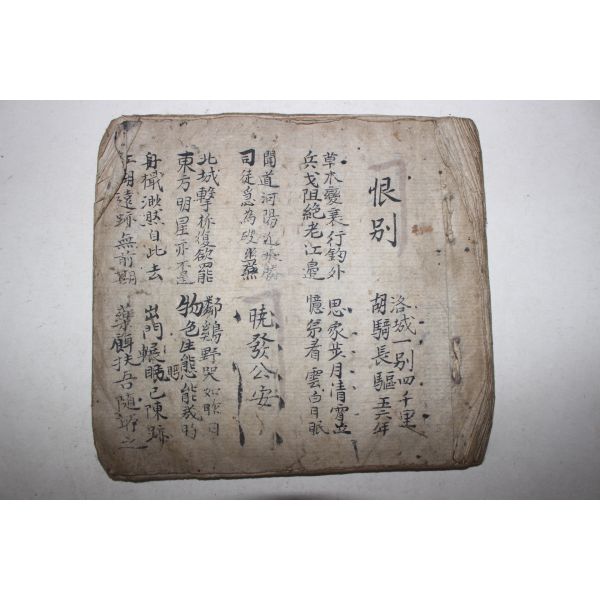 恨別
洛城一別四千里
胡騎長驅五六年
草木變衰行釣外
兵戈阻絕老江邊
思家步月清宵立
憶弟看雲白日眠
聞道河陽近乘勝
司徒急為破幽燕
曉發公安
北城擊柝復欲罷
東方明星亦不遲
鄰鷄野哭如昨日
物色生態能幾時
舟檝渺然自此去
江湖遠跡無前期
出門轉眄已陳跡
眄
藥餌扶吾隨所之